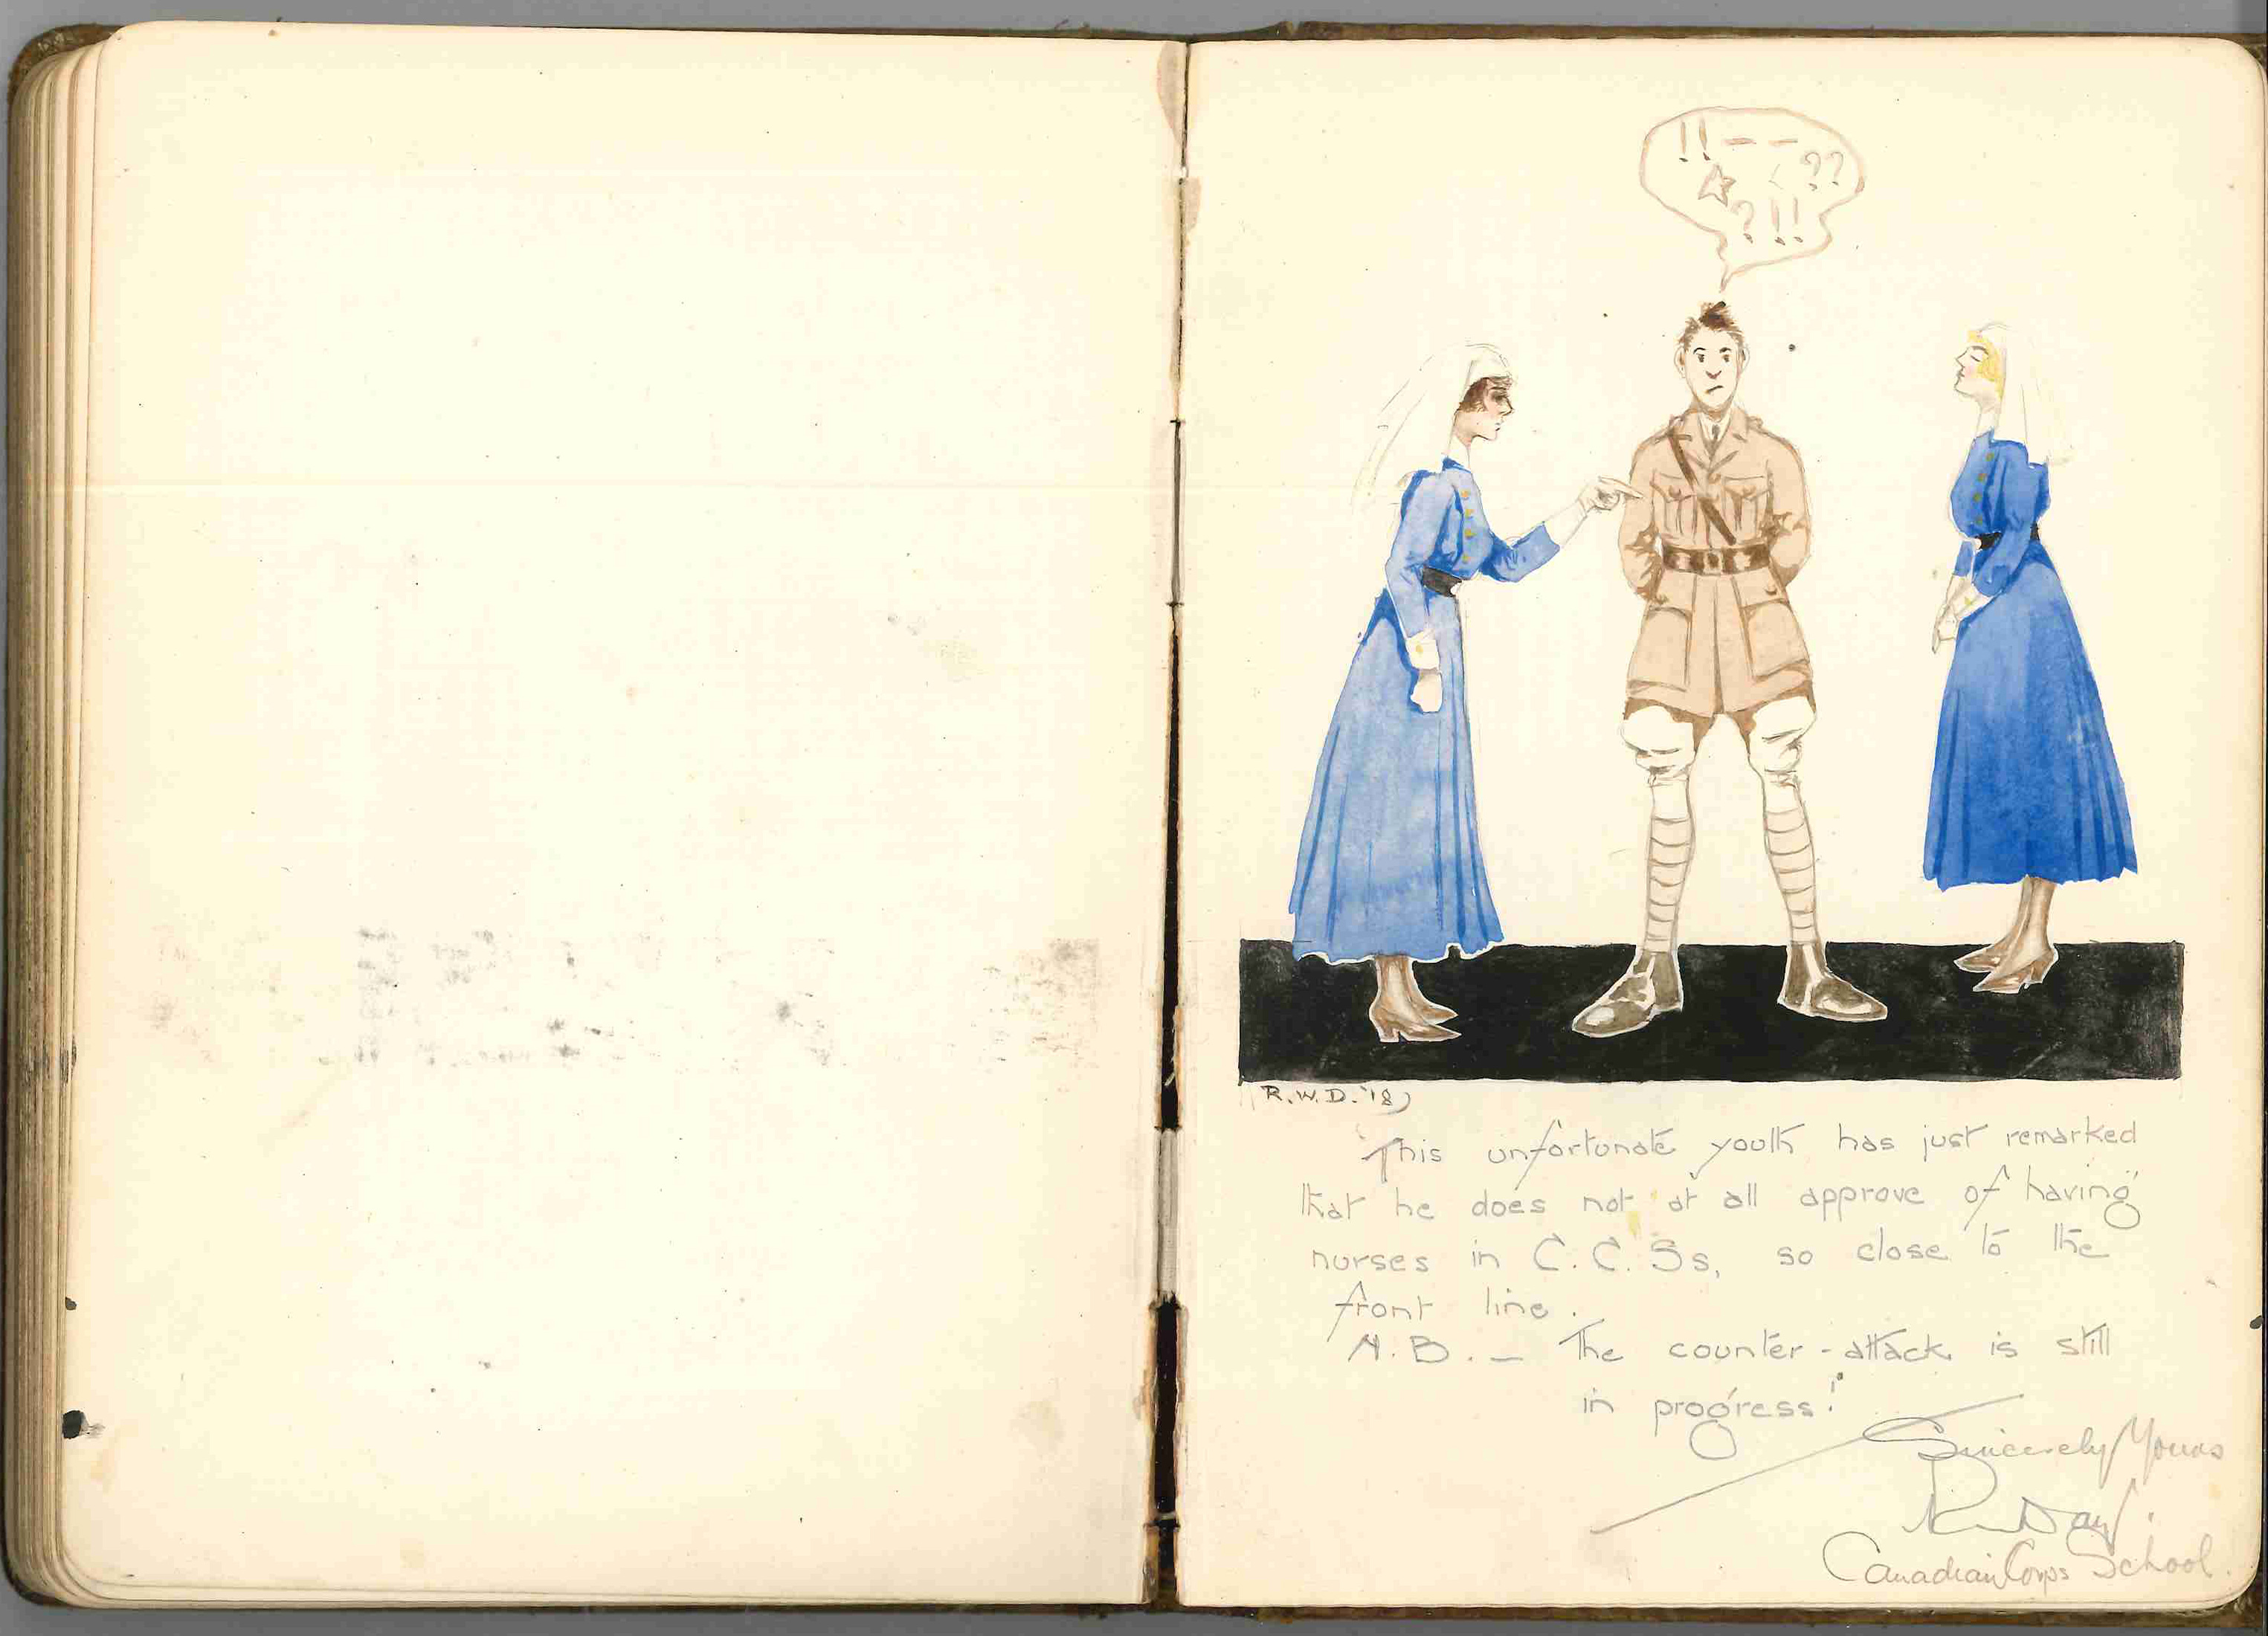 !! — —
??
? !!
R.W.D. '18
This unfortunate youth has just remarked
that he does not at all approve of having
nurses in C.C.Ss, so close to the
front line.
N.B. — The counter-attack is still
in progress!
Sincerely Yours
Day.
Canadian Corps School.